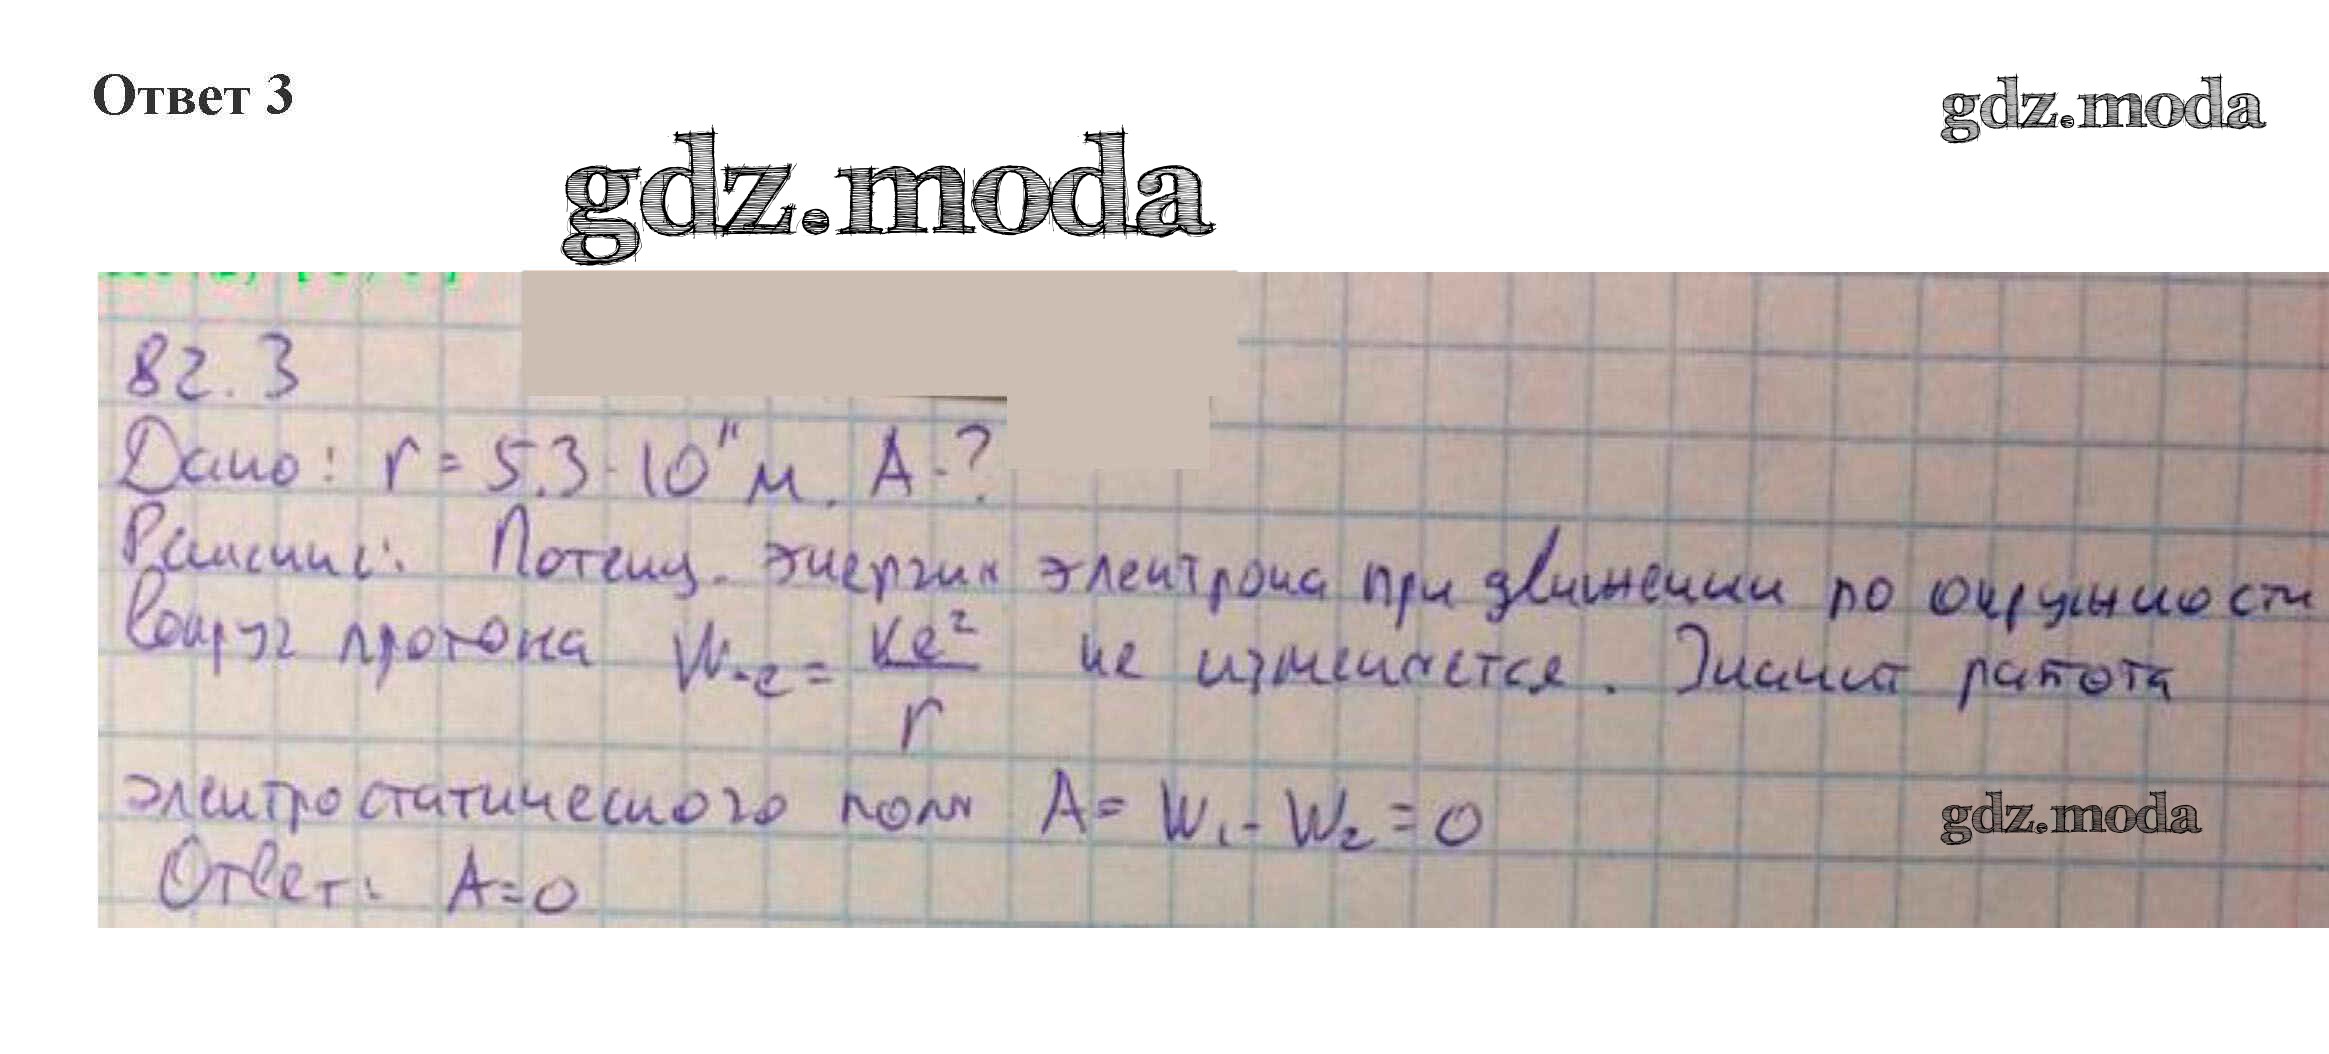 Ответ 3
gdz.moda
gdz.moda
82.3
Дано: r = 5.3·10¹¹ м. А-?
Решение: Потенц. энергия электрона при движении по окружности
вокруг протона W-e = ke²/r не изменяется. Значит работа
электростатического поля A = W₁ - W₂ = 0
gdz.moda
Ответ: A=0